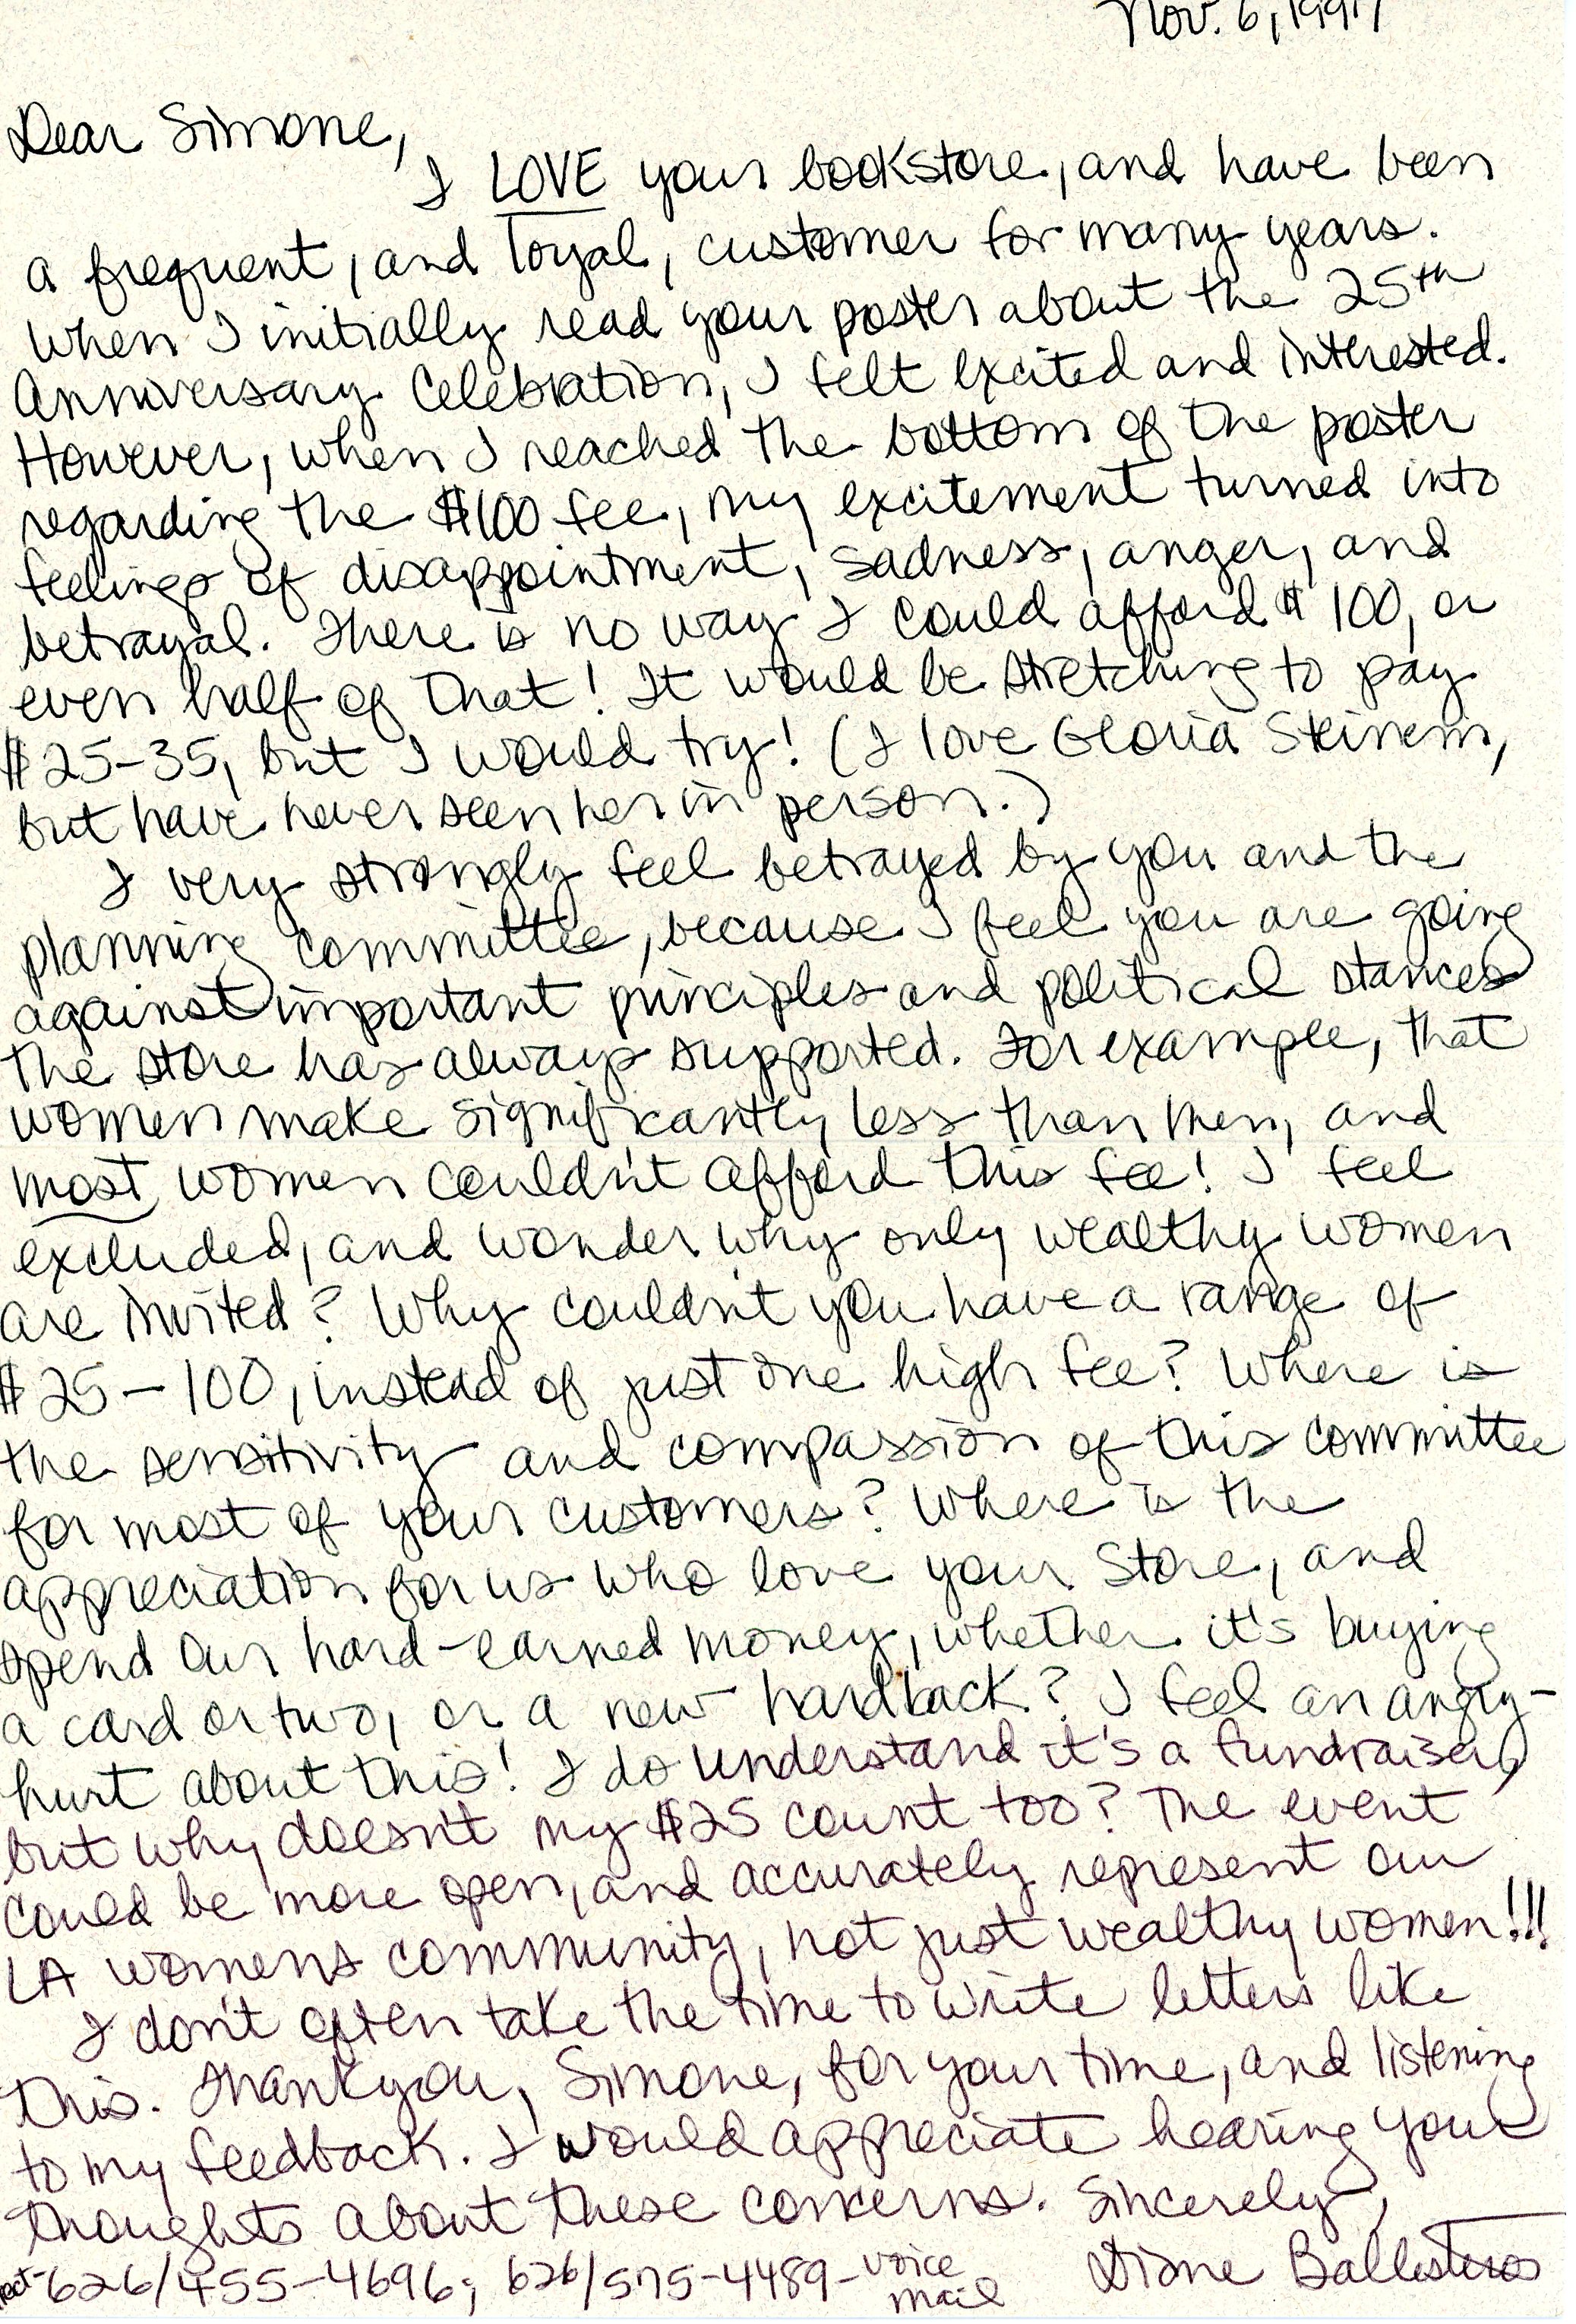 Nov. 6, 1997
Dear Simone,
I LOVE your bookstore, and have been
a frequent, and loyal, customer for many years.
When I initially read your poster about the 25th
Anniversary Celebration, I felt excited and interested.
However, when I reached the bottom of the poster
regarding the $100 fee, my excitement turned into
feelings of disappointment, sadness, anger, and
betrayal. There is no way I could afford $100, or
even half of that! It would be stretching to pay
$25-35, but I would try! (I love Gloria Steinem,
but have never seen her in person.)
I very strongly feel betrayed by you and the
planning committee, because I feel you are going
against important principles and political stances
the store has always supported. For example, that
women make significantly less than men, and
most women couldn't afford this fee! I feel
excluded, and wonder why only wealthy women
are invited? Why couldn't you have a range of
$25-100, instead of just one high fee? Where is
the sensitivity and compassion of this committee
for most of your customers? Where is the
appreciation for us who love your store, and
spend our hard-earned money, whether it's buying
a card or two, or a new hardback? I feel an angry-
hurt about this! I do understand it's a fundraiser,
but why doesn't my $25 count too? The event
could be more open, and accurately represent our
LA womens community, not just wealthy women!!!
I don't often take the time to write letters like
this. Thank you, Simone, for your time, and listening
to my feedback. I would appreciate hearing your
thoughts about these concerns. Sincerely,
626/455-4696; 626/575-4489-voice
mail
Diane Ballesteros